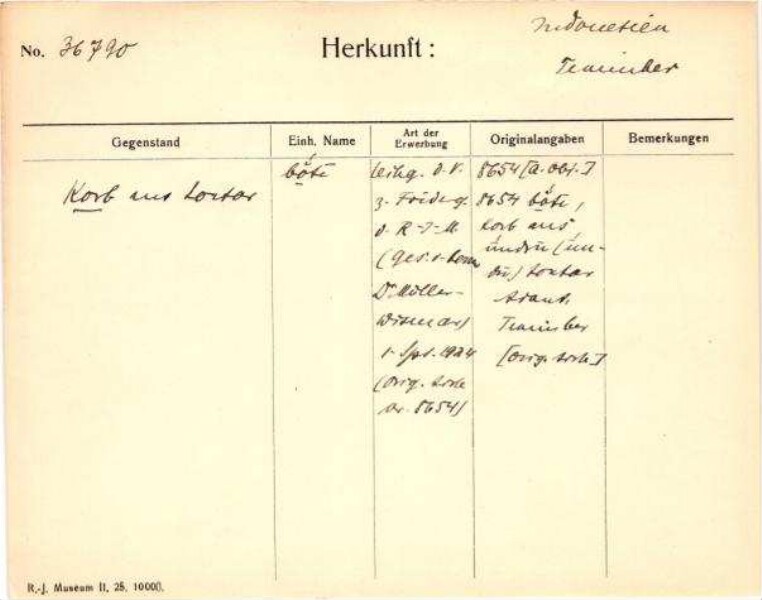 No. 36790
Herkunft:
Indonesien
Tanimber
Gegenstand
Einh. Name
Art der Erwerbung
Originalangaben
Bemerkungen
Korb aus Lontar
böti
Leihg. d. V.
z. Förderg.
d. R-J-M.
(Ges. v. Herrn
Dr Müller-
Wismar)
1. Spt. 1924
(orig.
nr. 8654)
8654 [a. Obj.]
8654 böti,
Korb aus
Lontar
Tanimber
R.-J. Museum II, 25, 10000.